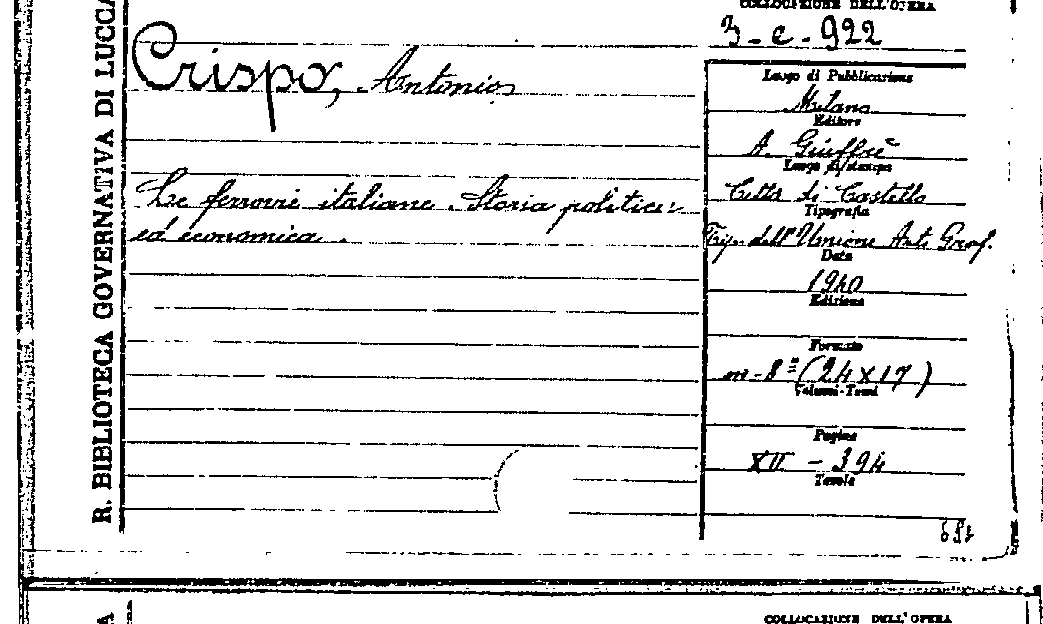 R. BIBLIOTECA GOVERNATIVA DI LUCCA
COLLOCAZIONE DELL'OPERA
3-c-922
Crispo, Antonio
Le ferrovie italiane. Storia politica
ed economica.
Luogo di Pubblicazione
Milano
Editore
A. Giuffrè
Luogo di stampa
Città di Castello
Tipografia
Tip. dell'Unione Arti Graf.
Data
1940
Edizione
Formato
in-8º (24x17)
Volumi-Tomi
Pagine
XII - 394
Tavole
COLLOCAZIONE DELL'OPERA